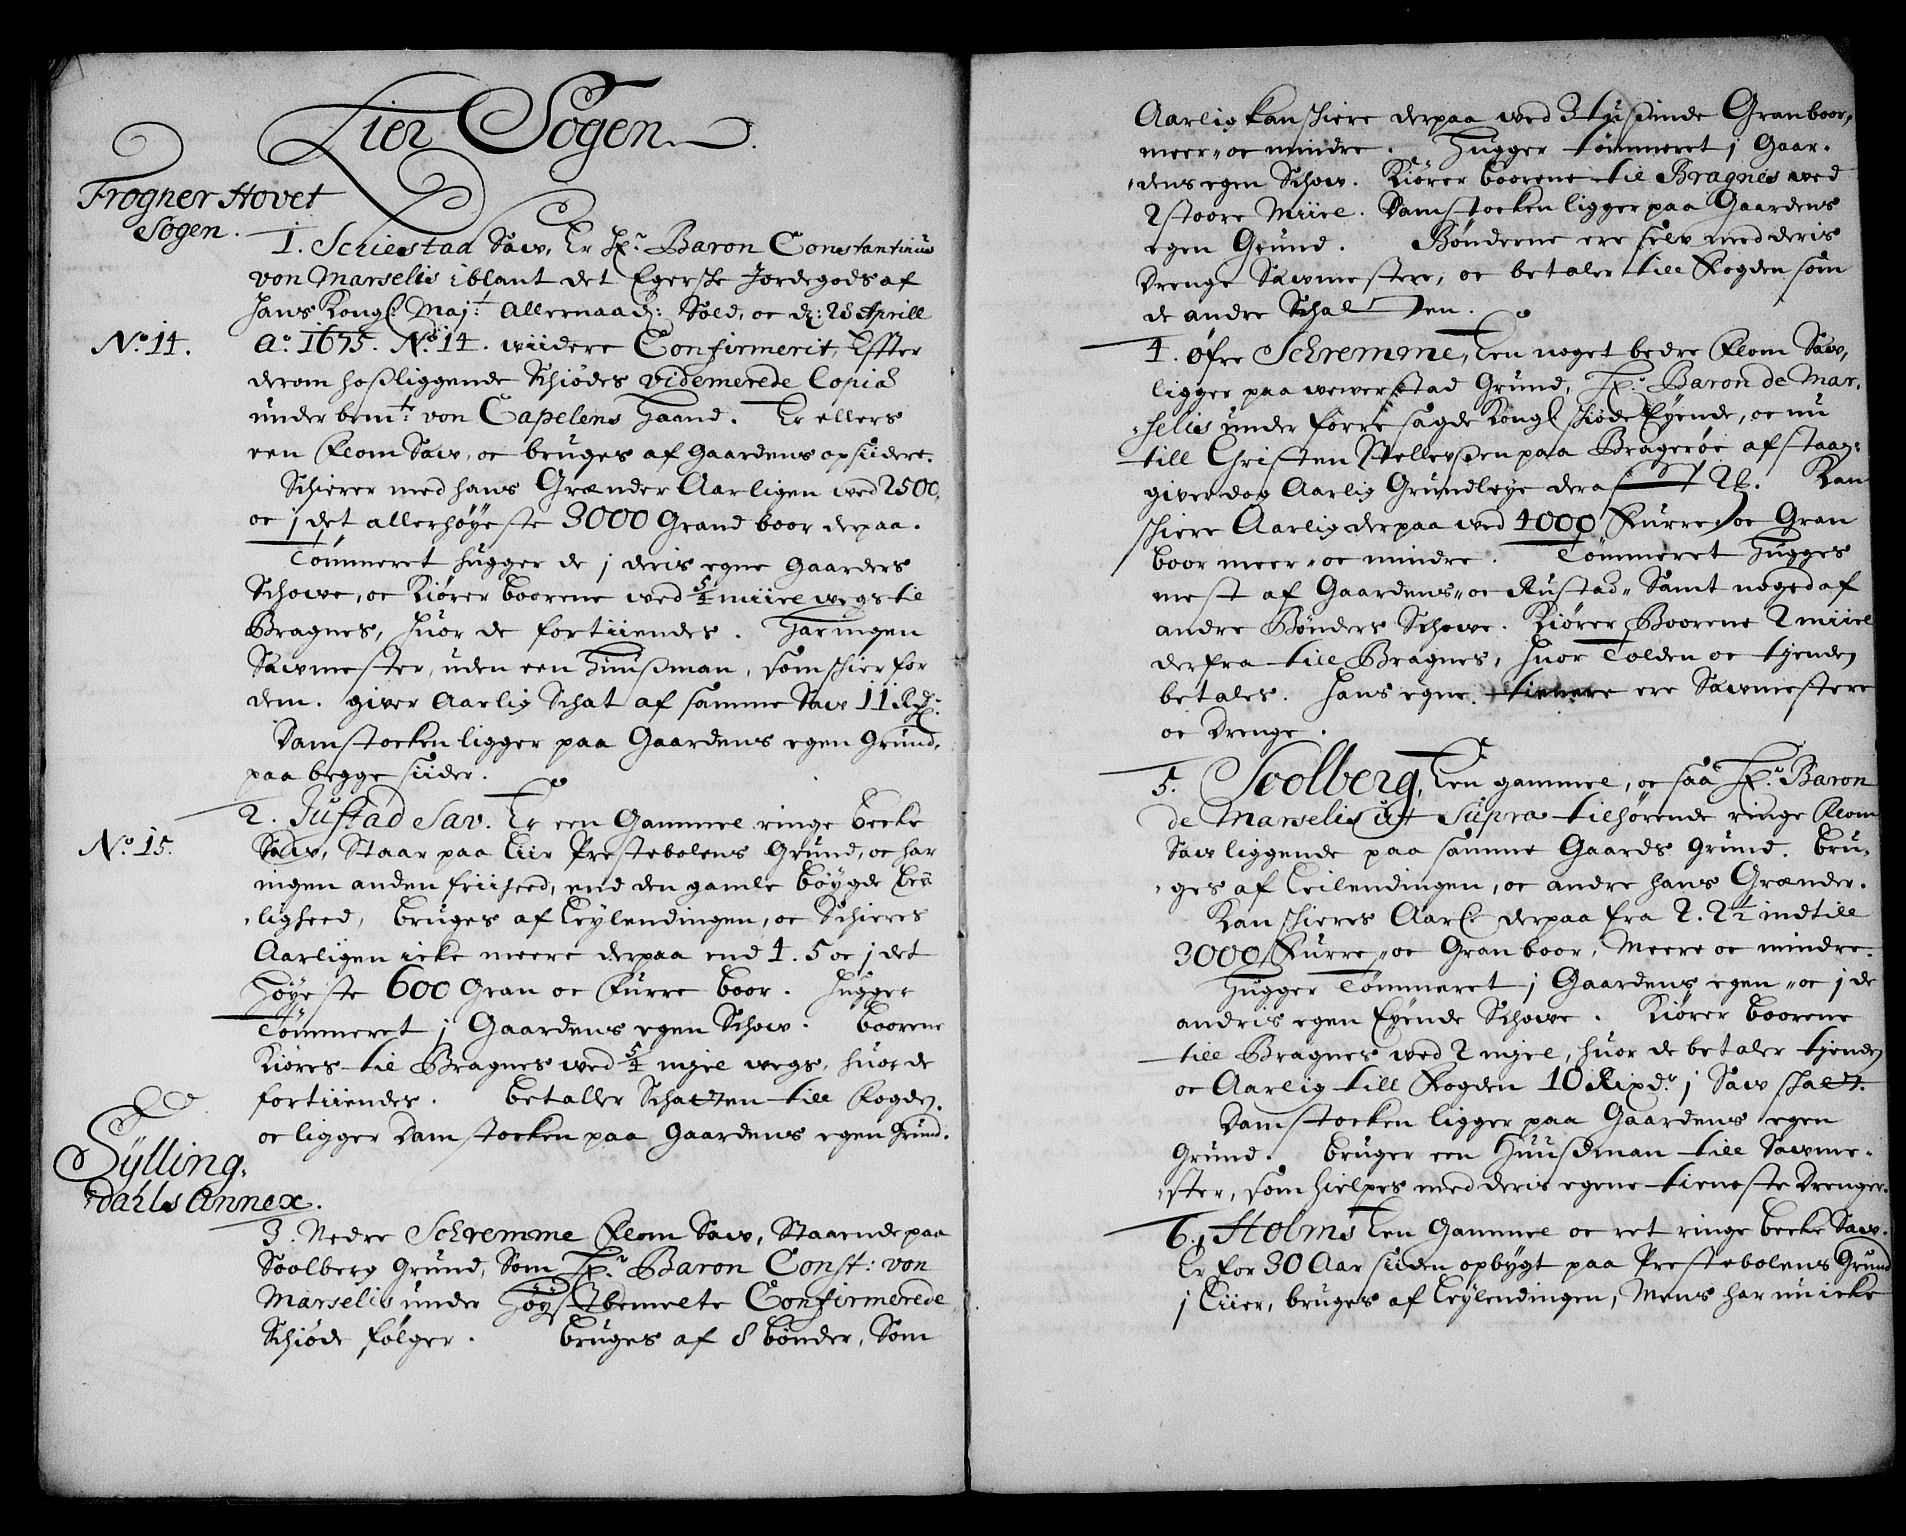 Lier Sogen.
Frogner Hovet
Sogen.
1. Schiestad Saw, Er Hr. Baron Constantinus
von Marselis iblant det Egerske Jordegods af
Hans Kongl: Majt: Allernaad: Sold, oc d: 28 Aprill
No. 14.
Ao. 1675. No. 14. widere Confirmerit, Effter
derom hoßliggende Schiødes videmerede Copia
under bemte: von Capelens Haand. Er ellers
een Flom Saw, oc bruges af Gaardens opsidere.
Schierer med hans Grænder Aarligen wed 2500,
oc j det allerhøyeste 3000 Grand boor derpaa.
Tømmeret hugger de j deris egne Gaarders
Schowe, oc Kiører boorene wed 5/4 miiel wegs til
Bragnes, huor de fortiiendes. Har ingen
Sawmester, uden een Huußman, som schier for
dem. giver Aarlig Schat af samme Saw 11 Rdr:
Damstocken ligger paa Gaardens egen Grund,
paa begge siider.
No. 15.
2. Justad Sav. Er een Gammel ringe becke
Saw, Staar paa Liir Prestebolens Grund, oc har
ingen anden friiheed, end den gamle bøygde bev
-ligheed, bruges af Leylendingen, oc Schieres
Aarligen icke meere derpaa end 4. 5 oc j det
Høyeste 600 Gran oc Furre boor. Hugger
Tømmeret j Gaardens egen Schow. Boorene
Kiøres til Bragnes wed 5/4 mjel wegs, huor de
fortiiendes. Betaller Schatten till Fogden.
oc ligger Damstocken paa Gaardens egen Grund.
Sylling,
-dahls Annex.
3. Nedre Schremme Flom Saw, Staaende paa
Soolberg Grund, Som Hr. Baron Const: von
Marselis under Høystbemelte Confirmerede
Schiøde følger. Bruges af 8 bønder, Som
Aarlig kan schiere derpaa wed 3 tusinde Gran boor,
meer oc mindre. Hugger tømmeret j Gaar-
-dens egen Schow. Kiører boorene til Bragnes wed
2 stoore Miiel. Damstocken ligger paa Gaardens
egen Grund. Bønderne ere selv med deris
Drenge Sawmestere, oc betaler till Fogden som
de andre Schatten.
4. Øfre Schremme, Een noget bedre Flom Saw,
ligger paa wewerstad Grund, Hr. Baron de Mar-
-selis under forre sagde Kongl schiøde Eyende, oc nu
till Christen Nellevßen paa Bragerøe afstaan:
giver dog Aarlig Grundleye deraf 2 . Kan
schiere Aarlig derpaa wed 4000 Furre oc Gran
boor meer oc mindre. Tømmeret Hugges
mest af Gaardens oc Rustad Samt noged af
andre Bønders Schowe. Kiører Boorene 2 miiel
derfra till Bragnes, huor Tolden oc tjenden
betales. Hans egne tienere ere Sawmestere
oc Drenge.
5. Soolberg, Een gammel, oc saa Hr. Baron
de Marselis ut Supra tilhørende ringe Flom
Saw liggende paa samme Gaards Grund. bru-
-ges af Leilendingen, oc andre hans Grænder.
Kan schieres Aarl: derpaa fra 2. 2 1/2 indtill
3000 Furre oc Gran boor, Meere oc mindre.
Hugger Tømmeret j Gaardens egen oc j de
andris egen Eyende Schowe. Kiører boorene
till Bragnes wed 2 mjel, huor de betaler tjenden
oc Aarlig till Fogden 10 Rixdr. j Saw schatt.
Damstocken ligger paa Gaardens egen
Grund. bruger een Huußman till Sawme-
-ster, som hielpes med deris egene tieneste Drenger.
6. j Holms Een Gammel oc ret ringe becke Saw.
Er for 30 Aar siiden opbygt paa Prestebolens Grund
j Liier, bruges af Leylendingen, Mens har nu icke